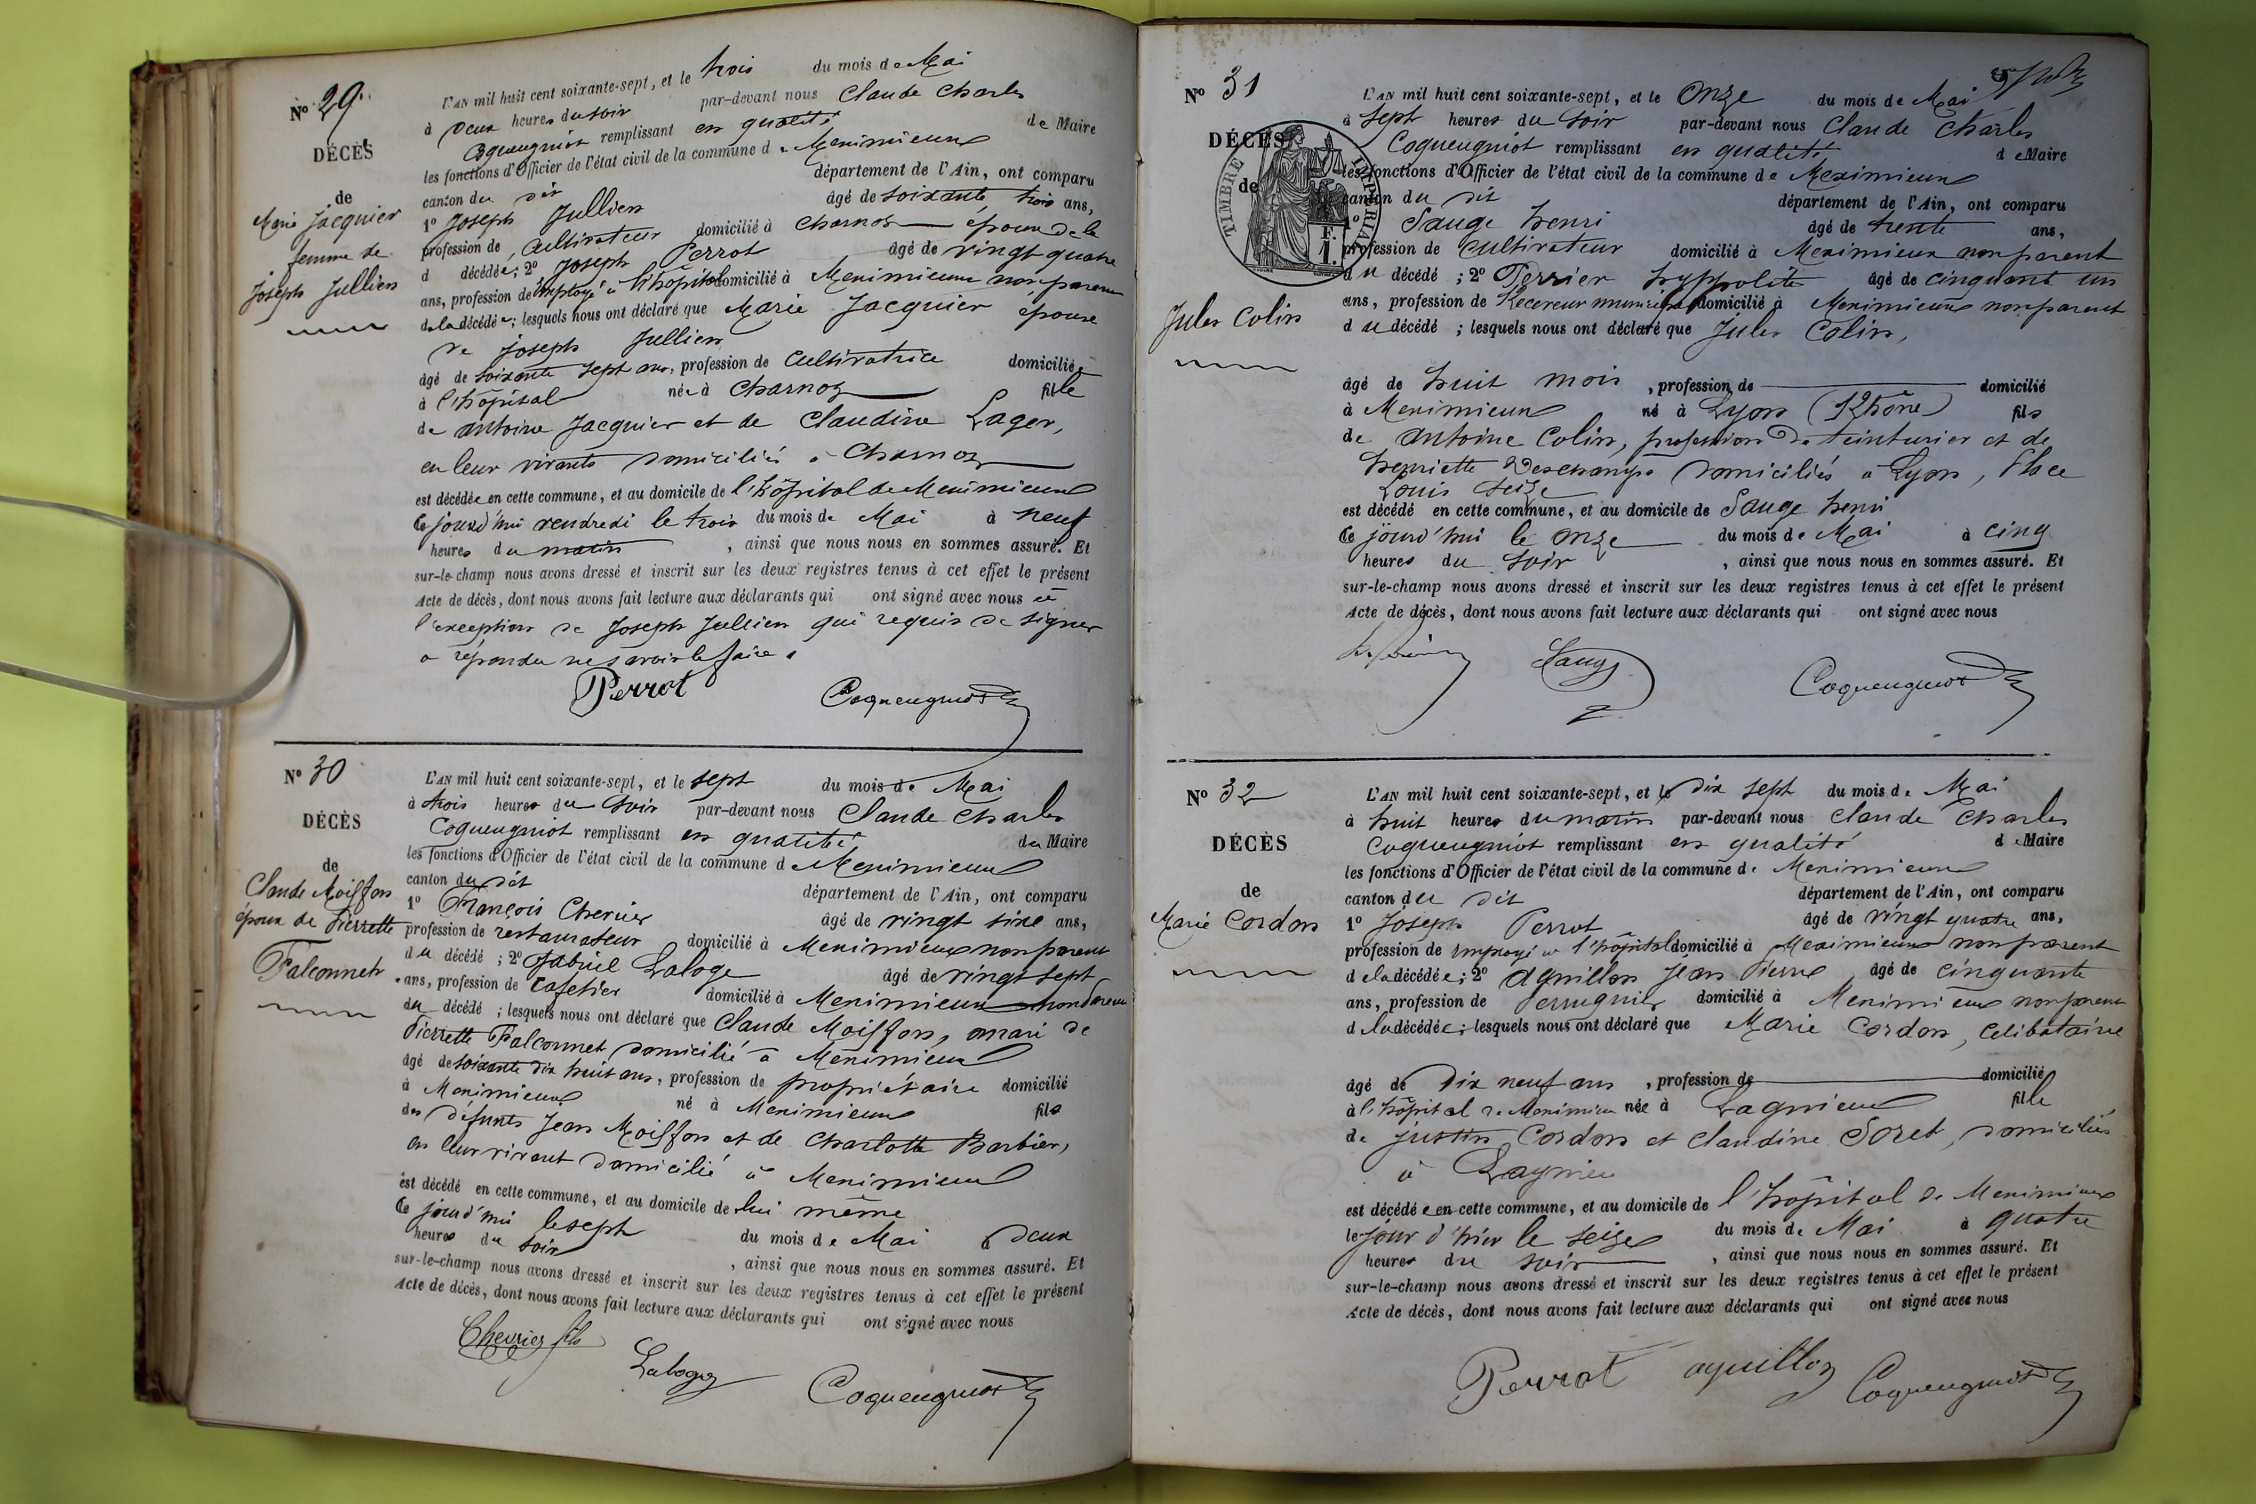 Nº 29.
DÉCÈS
de
Marie Jacquier
femme de
Joseph Jullien
L'AN mil huit cent soixante-sept, et le trois du mois de Mai
à Deux heures du soir par-devant nous Claude Charles
Coqueugniot remplissant en qualité de Maire
les fonctions d'Officier de l'état civil de la commune de Meximieux
canton du dit département de l'Ain, ont comparu
1º Joseph Jullien âgé de soixante trois ans,
profession de cultivateur domicilié à Charnoz époux de la
d décédée; 2º Joseph Perrot âgé de vingt quatre
ans, profession de employé à l'hôpital domicilié à Meximieux non parent
de la décédée; lesquels nous ont déclaré que Marie Jacquier épouse
de Joseph Jullien
âgé de soixante sept ans, profession de cultivatrice domiciliée
à l'hôpital née à Charnoz fille
de antoine Jacquier et de Claudine Lager,
en leur vivants domiciliés à Charnoz
est décédée en cette commune, et au domicile de l'hôpital de Meximieux
Ce jourd'hui vendredi le trois du mois de Mai à neuf
heures du matin , ainsi que nous nous en sommes assuré. Et
sur-le-champ nous avons dressé et inscrit sur les deux registres tenus à cet effet le présent
Acte de décès, dont nous avons fait lecture aux déclarants qui ont signé avec nous à
l'exception de Joseph Jullien qui requis de signer
a répondu ne savoir le faire.
Perrot Coqueugniot
Nº 30
DÉCÈS
de
Claude Moiffon
époux de Pierrette
Falconnet
L'AN mil huit cent soixante-sept, et le sept du mois de Mai
à trois heures du soir par-devant nous Claude Charles
Coqueugniot remplissant en qualité du Maire
les fonctions d'Officier de l'état civil de la commune de Meximieux
canton du dit département de l'Ain, ont comparu
1º François Chevrier âgé de vingt sixe ans,
profession de restaurateur domicilié à Meximieux non parent
du décédé; 2º Gabriel Laloge âgé de vingt sept
ans, profession de cafetier domicilié à Meximieux non parent
du décédé; lesquels nous ont déclaré que Claude Moiffon, mari de
Pierrette Falconnet domicilié à Meximieux
âgé de soixante dix huit ans, profession de propriétaire domicilié
à Meximieux né à Meximieux fils
des défunts Jean Moiffon et de Charlotte Barbier,
en leur vivant domicilié à Meximieux
est décédé en cette commune, et au domicile de lui même
Ce jourd'hui le sept du mois de Mai à deux
heures du soir , ainsi que nous nous en sommes assuré. Et
sur-le-champ nous avons dressé et inscrit sur les deux registres tenus à cet effet le présent
Acte de décès, dont nous avons fait lecture aux déclarants qui ont signé avec nous
Chevrier fils Laloge Coqueugniot
Nº 31
DÉCÈS
de
Jules Colin
TIMBRE IMPÉRIAL
L'AN mil huit cent soixante-sept, et le Onze du mois de Mai
à sept heures du soir par-devant nous Claude Charles
Coqueugniot remplissant en qualité de Maire
les fonctions d'Officier de l'état civil de la commune de Meximieux
canton du dit département de l'Ain, ont comparu
1º Sauge henri âgé de trente ans,
profession de cultivateur domicilié à Meximieux non parent
du décédé; 2º Perrier hyppolite âgé de cinquant un
ans, profession de Receveur municipal domicilié à Meximieux non parent
du décédé; lesquels nous ont déclaré que Jules Colin,
âgé de huit mois, profession de domicilié
à Meximieux né à Lyon (Rhône) fils
de antoine Colin, profession de teinturier et de
henriette Deschamps domiciliés à Lyon, Place
Louis seize
est décédé en cette commune, et au domicile de Sauge henri
Ce jourd'hui le onze du mois de Mai à cinq
heures du soir , ainsi que nous nous en sommes assuré. Et
sur-le-champ nous avons dressé et inscrit sur les deux registres tenus à cet effet le présent
Acte de décès, dont nous avons fait lecture aux déclarants qui ont signé avec nous
Sauge Coqueugniot
Nº 32
DÉCÈS
de
Marie Cordon
L'AN mil huit cent soixante-sept, et le dix sept du mois de Mai
à huit heures du matin par-devant nous Claude Charles
Coqueugniot remplissant en qualité de Maire
les fonctions d'Officier de l'état civil de la commune de Meximieux
canton du dit département de l'Ain, ont comparu
1º Joseph Perrot âgé de vingt quatre ans,
profession de employé à l'hôpital domicilié à Meximieux non parent
de la décédée; 2º aguillon Jean Pierre âgé de cinquante
ans, profession de Perruquier domicilié à Meximieux non parent
de la décédée; lesquels nous ont déclaré que Marie Cordon, celibataire
âgé de Dix neuf ans, profession de domicilié
à l'hôpital de Meximieu née à Lagnieu fille
de justin Cordon et Claudine Soret, domiciliés
à Lagnieu
est décédée en cette commune, et au domicile de l'hôpital de Meximieux
le jour d'hier le seize du mois de Mai à quatre
heures du soir , ainsi que nous nous en sommes assuré. Et
sur-le-champ nous avons dressé et inscrit sur les deux registres tenus à cet effet le présent
Acte de décès, dont nous avons fait lecture aux déclarants qui ont signé avec nous
Perrot aguillon Coqueugniot